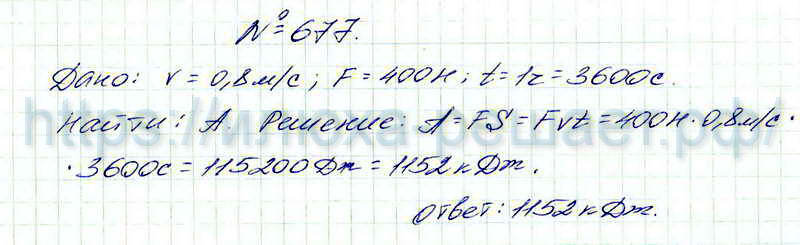 №677.
Дано: v = 0,8м/с; F = 400Н; t = 1ч = 3600с.
Найти: A. Решение: A = FS = Fvt = 400Н · 0,8м/с ·
· 3600с = 115200Дж = 1152кДж.
Ответ: 1152кДж.
https://илюха-решает.рф/